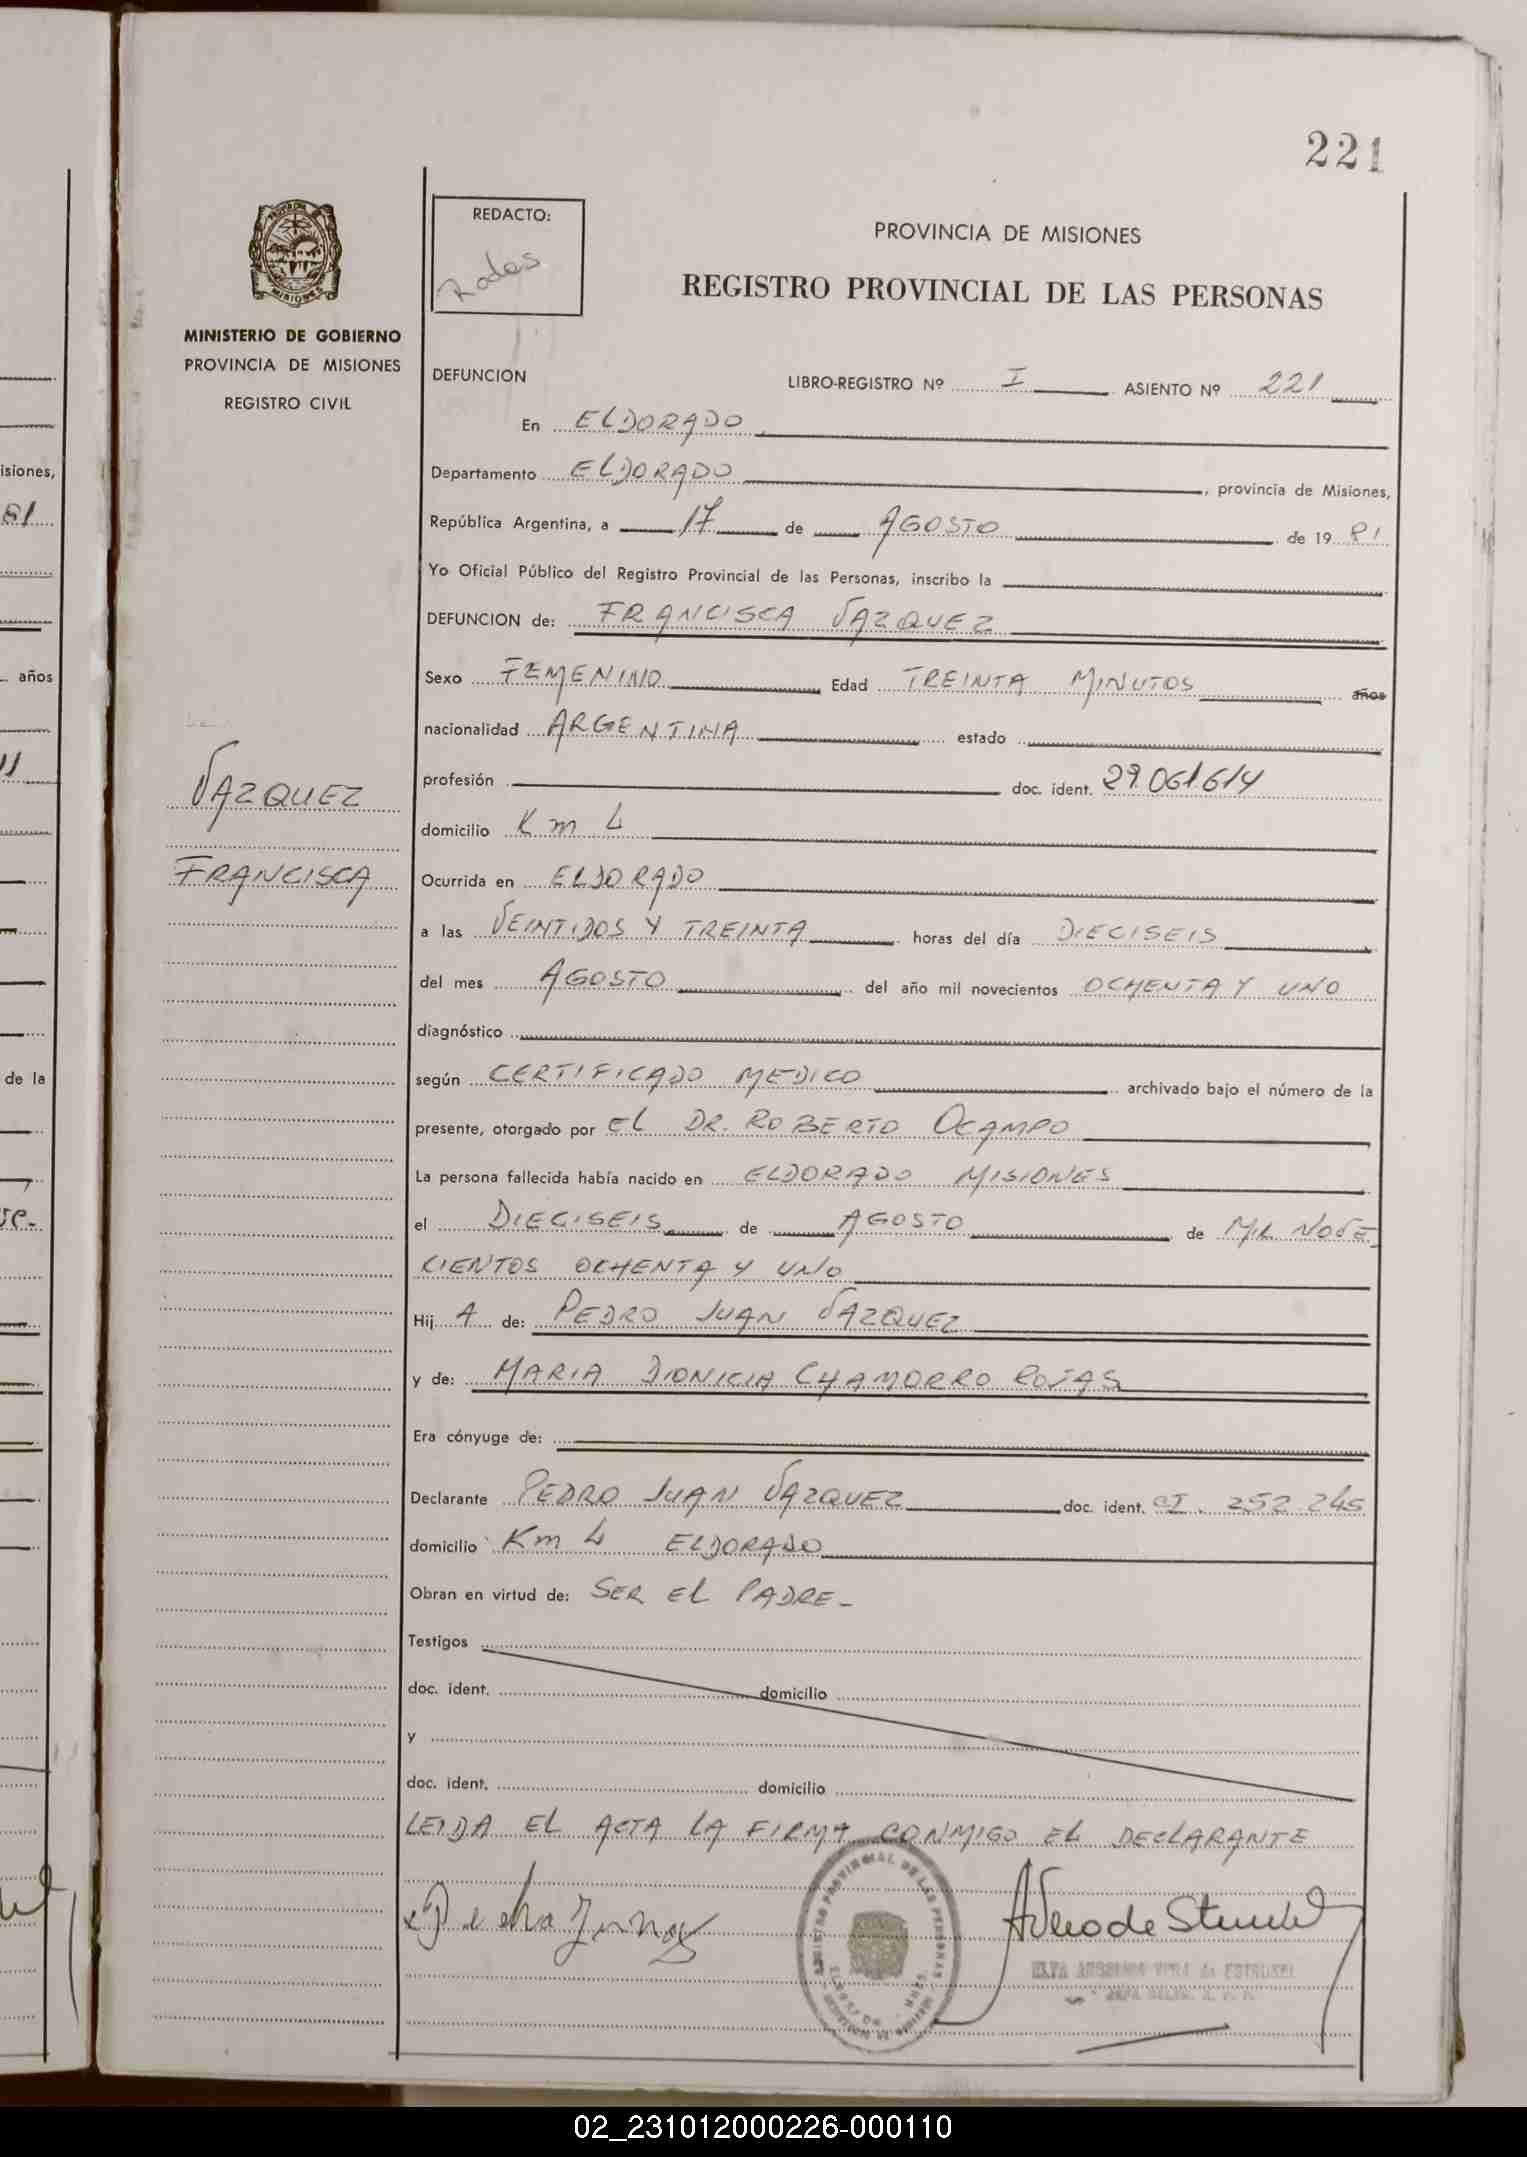 221
REDACTO:
Rodas
PROVINCIA DE MISIONES
REGISTRO PROVINCIAL DE LAS PERSONAS
MISIONES
MINISTERIO DE GOBIERNO
PROVINCIA DE MISIONES
REGISTRO CIVIL
DEFUNCION LIBRO-REGISTRO Nº I ASIENTO Nº 221
En ELDORADO
Departamento ELDORADO, provincia de Misiones,
República Argentina, a 17 de AGOSTO de 1981
Yo Oficial Público del Registro Provincial de las Personas, inscribo la
DEFUNCION de: FRANCISCA VAZQUEZ
Sexo FEMENINO Edad TREINTA MINUTOS años
nacionalidad ARGENTINA estado
profesión doc. ident. 29.061.614
VAZQUEZ
domicilio Km 4
FRANCISCA
Ocurrida en ELDORADO
a las VEINTIDOS Y TREINTA horas del día DIECISEIS
del mes AGOSTO del año mil novecientos OCHENTA Y UNO
diagnóstico
según CERTIFICADO MEDICO archivado bajo el número de la
presente, otorgado por EL DR. ROBERTO OCAMPO
La persona fallecida había nacido en ELDORADO MISIONES
el DIECISEIS de AGOSTO de MIL NOVE-
CIENTOS OCHENTA Y UNO
Hij A de: PEDRO JUAN VAZQUEZ
y de: MARIA DIONICIA CHAMORRO ROJAS
Era cónyuge de:
Declarante PEDRO JUAN VAZQUEZ doc. ident. CI. 252.245
domicilio Km 4 ELDORADO
Obran en virtud de: SER EL PADRE-
Testigos
doc. ident. domicilio
y
doc. ident. domicilio
LEIDA EL ACTA LA FIRMA CONMIGO EL DECLARANTE
REGISTRO PROVINCIAL DE LAS PERSONAS
isiones,
81
años
11
de la
02_231012000226-000110